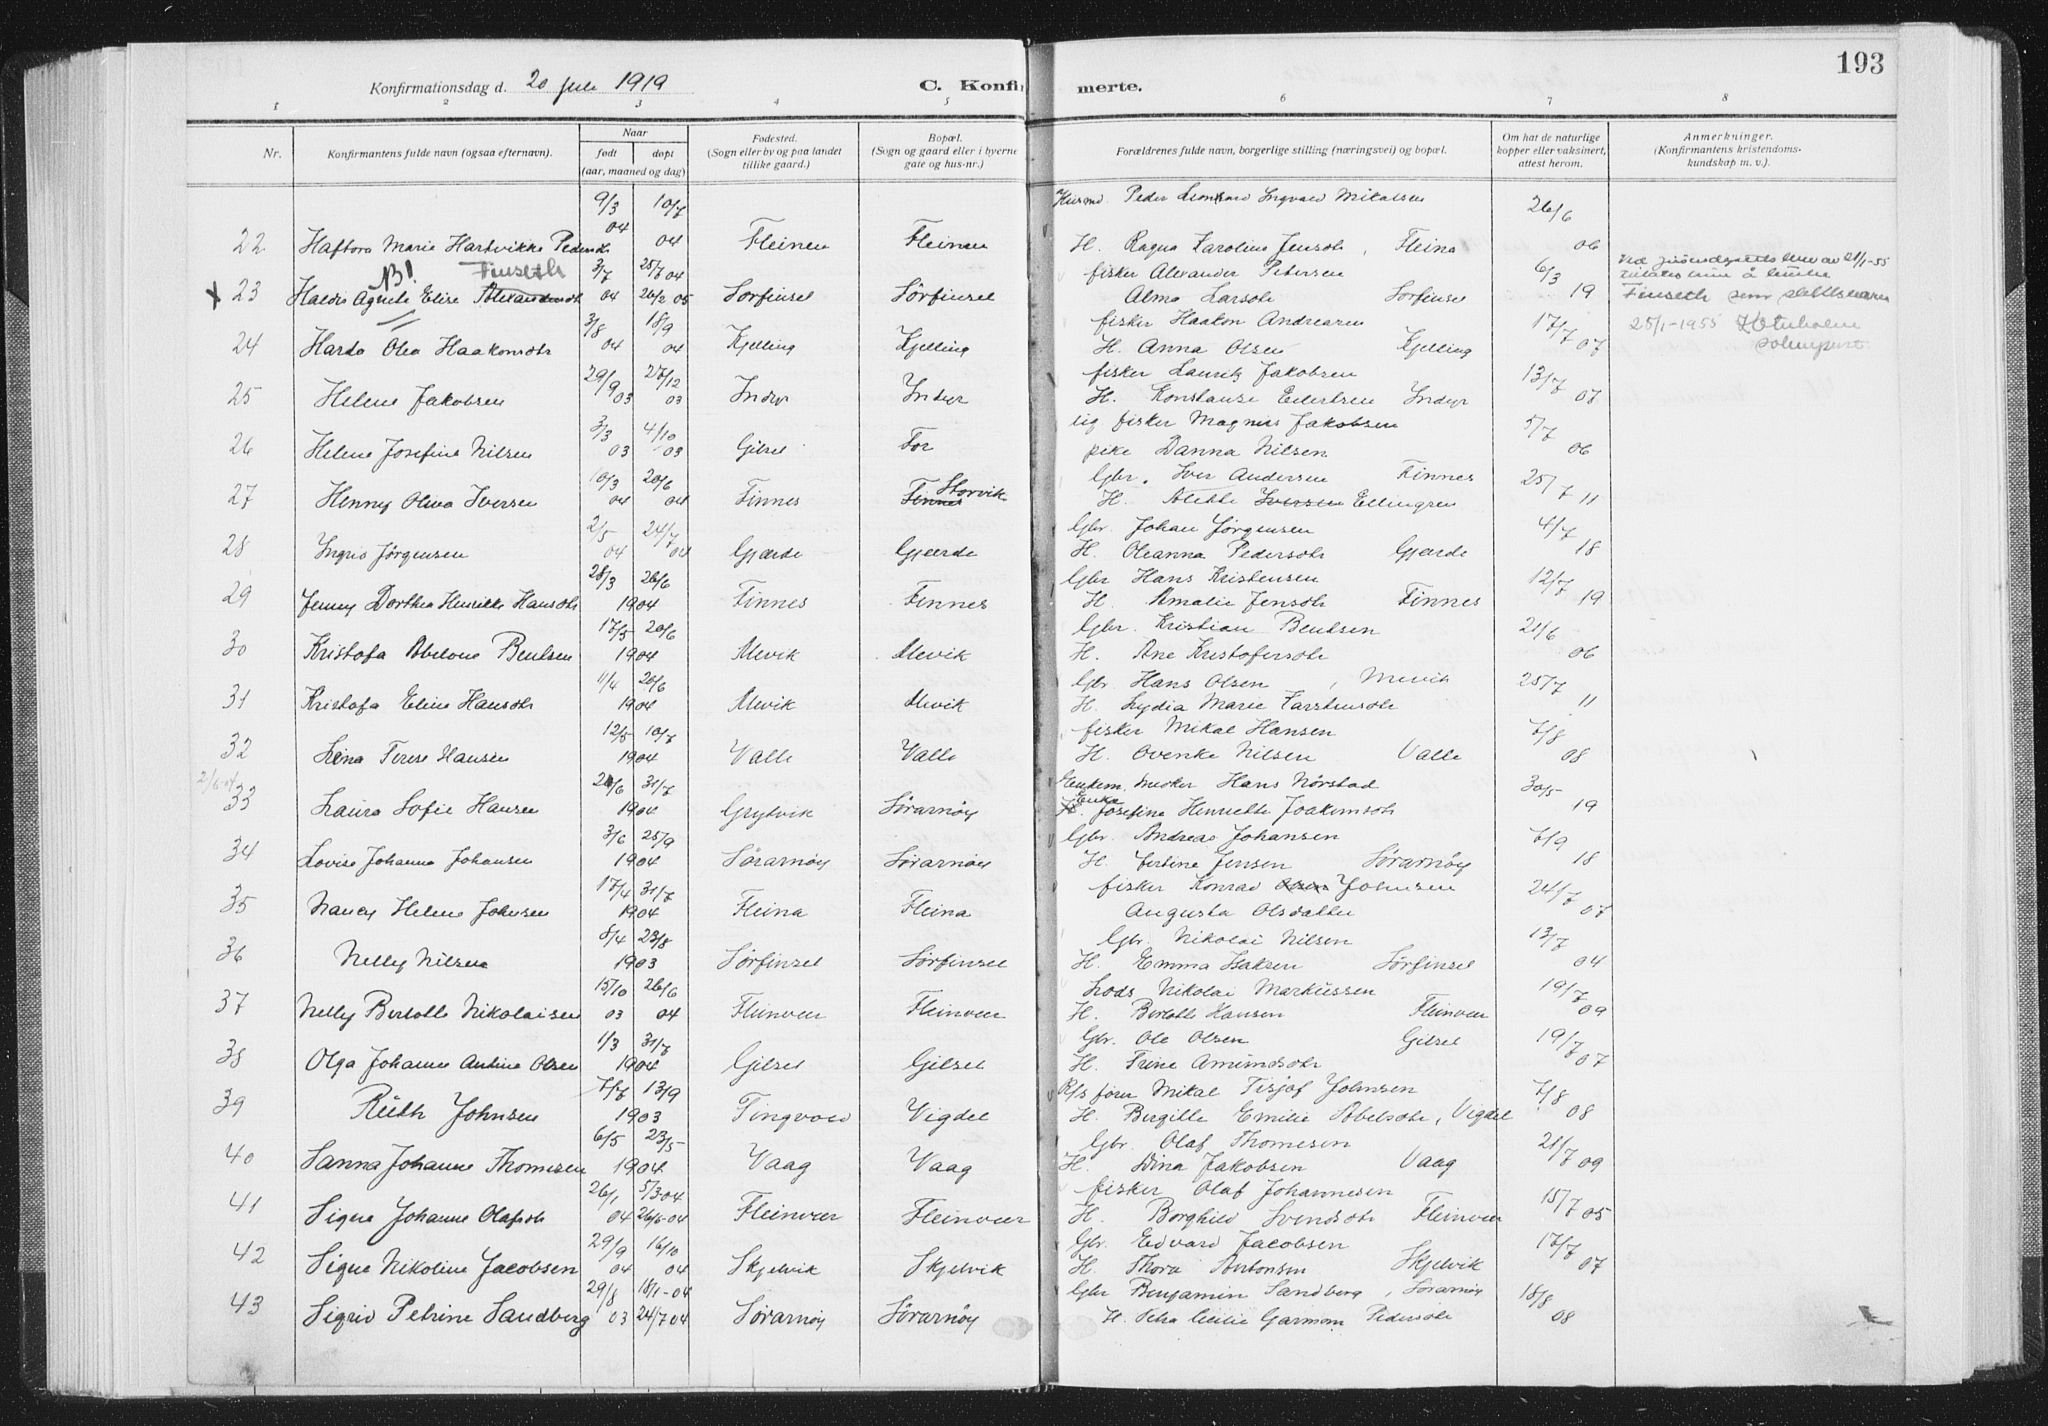 193
Konfirmationsdag d. 20 juli 1919
C. Konfirmerte.
1 2 3 4 5 6 7 8
Nr. Konfirmantens fulde navn (ogsaa efternavn). Naar født døpt (aar, maaned og dag) Fødested. (Sogn eller by og paa landet tillike gaard.) Bopæl. (Sogn og gaard eller i byerne gate og hus-nr.) Forældrenes fulde navn, borgerlige stilling (næringsvei) og bopæl. Om hat de naturlige kopper eller vaksinert, attest herom. Anmerkninger. (Konfirmantens kristendomskundskap m. v.).
9/3 10/7 Husmd. Peder Leonhard Ingvald Mikalsen 26/6
22 Haftora Marie Hartvikke Pedersdtr 04 04 Fleinen Fleinen H. Ragna Karoline Jensdtr, Fleina 06
NB! Finseth 3/7 25/7 04 fisker Alexander Petersen 6/3
x 23 Haldis Agnete Elise Alexandersdtr 04 26/2 05 Sørfinset Sørfinset Alma Larsdtr Sørfinset 19 Finseth som slektsnavn
25/1-1955
3/8 18/9 fisker Haakon Andreasen 17/7
24 Harda Olea Haakonsdtr 04 04 Kjelling Kjelling H. Anna Olsen Kjelling 07
29/9 27/12 fisker Laurits Jakobsen 13/7
25 Helene Jakobsen 03 03 Indyr Indyr H. Konstanse Eilertsen Indyr 07
3/3 4/10 ug fisker Magnus Jakobsen 5/7
26 Helene Josefine Nilsen 03 03 Gilset For pike Danna Nilsen 06
10/3 20/6 Storvik Gbr. Iver Andersen Finnes 25/7
27 Henny Oliva Iversen 04 04 Finnes Finnes H. Iversen Ellingsen 11
2/5 24/7 Gbr. Johan Jørgensen 4/7
28 Ingrid Jørgensen 04 04 Gjærde Gjærde H. Oleanna Pedersdtr Gjærde 18
28/3 26/6 Gbr Hans Kristensen 12/7
29 Jenny Dorthea Henrikke Hansdtr 1904 Finnes Finnes H. Amalie Jensdtr Finnes 19
17/5 20/6 Gbr. Kristian Bentsen 21/6
30 Kristofa Abelone Bentsen 1904 Mevik Mevik H. Ane Kristofersdtr 06
11/4 26/6 Gbr. Hans Olsen, Mevik 25/7
31 Kristofa Eline Hansdtr 1904 Mevik Mevik H. Lydia Marie Karstensdtr 11
12/5 10/7 fisker Mikal Hansen 7/8
32 Lina Terese Hansen 1904 Valle Valle H. Ovenke Nilsen Valle 08
2/6-04 26/6 31/7 Enkem. snekker Hans Nørstad 30/5
33 Laura Sofie Hansen 1904 Grytvik Sørarnøy H. Enke Josefine Henriette Joakimsdtr 19
3/6 25/9 Gbr. Andreas Johansen 7/9
34 Lovise Johanna Johansen 1904 Sørarnøy Sørarnøy H. Jertine Jensen Sørarnøy 18
17/4 31/7 fisker Konrad Olsen Johnsen 24/7
35 Nancy Helene Johnsen 1904 Fleina Fleina Augusta Olsdatter 07
8/4 23/8 Gbr. Nikolai Nilsen 13/7
36 Nelly Nilsen 1903 Sørfinset Sørfinset H. Emma Isaksen Sørfinset 04
15/10 26/6 Lods Nikolai Markussen 19/7
37 Nelly Bertotte Nikolaisen 03 04 Fleinvær Fleinvær H. Bertotte Hansen Fleinvær 09
1/3 31/7 Gbr. Ole Olsen Gilset 19/7
38 Olga Johanne Antine Olsen 1904 Gilset Gilset H. Trine Amundsdtr 07
7/7 13/9 R/s fører Mikal Tisjof Johnsen 7/8
39 Ruth Johnsen 1903 Tingvold Vigdel H. Bergitte Emilie Abelsdtr, Vigdel 08
6/5 23/5 Gbr. Olaf Thomesen 21/7
40 Sanna Johanne Thomesen 1904 Vaag Vaag H. Dina Jakobsen Vaag 09
26/1 5/3 04 fisker Olaf Johannesen 15/7
41 Signe Johanne Olafsdtr 04 26/6-04 Fleinvær Fleinvær H. Borghild Svendsdtr Fleinvær 05
29/9 16/10 Gbr. Edvard Jacobsen 17/7
42 Signe Nikoline Jacobsen 04 04 Skjelvik Skjelvik H. Thora Antonsen Skjelvik 07
29/8 18/1-04 Gbr Benjamin Sandberg, Sørarnøy 18/8
43 Sigrid Petrine Sandberg 03 24/7 04 Sørarnøy Sørarnøy H. Petra Cecilie Garmom Pedersdtr 08